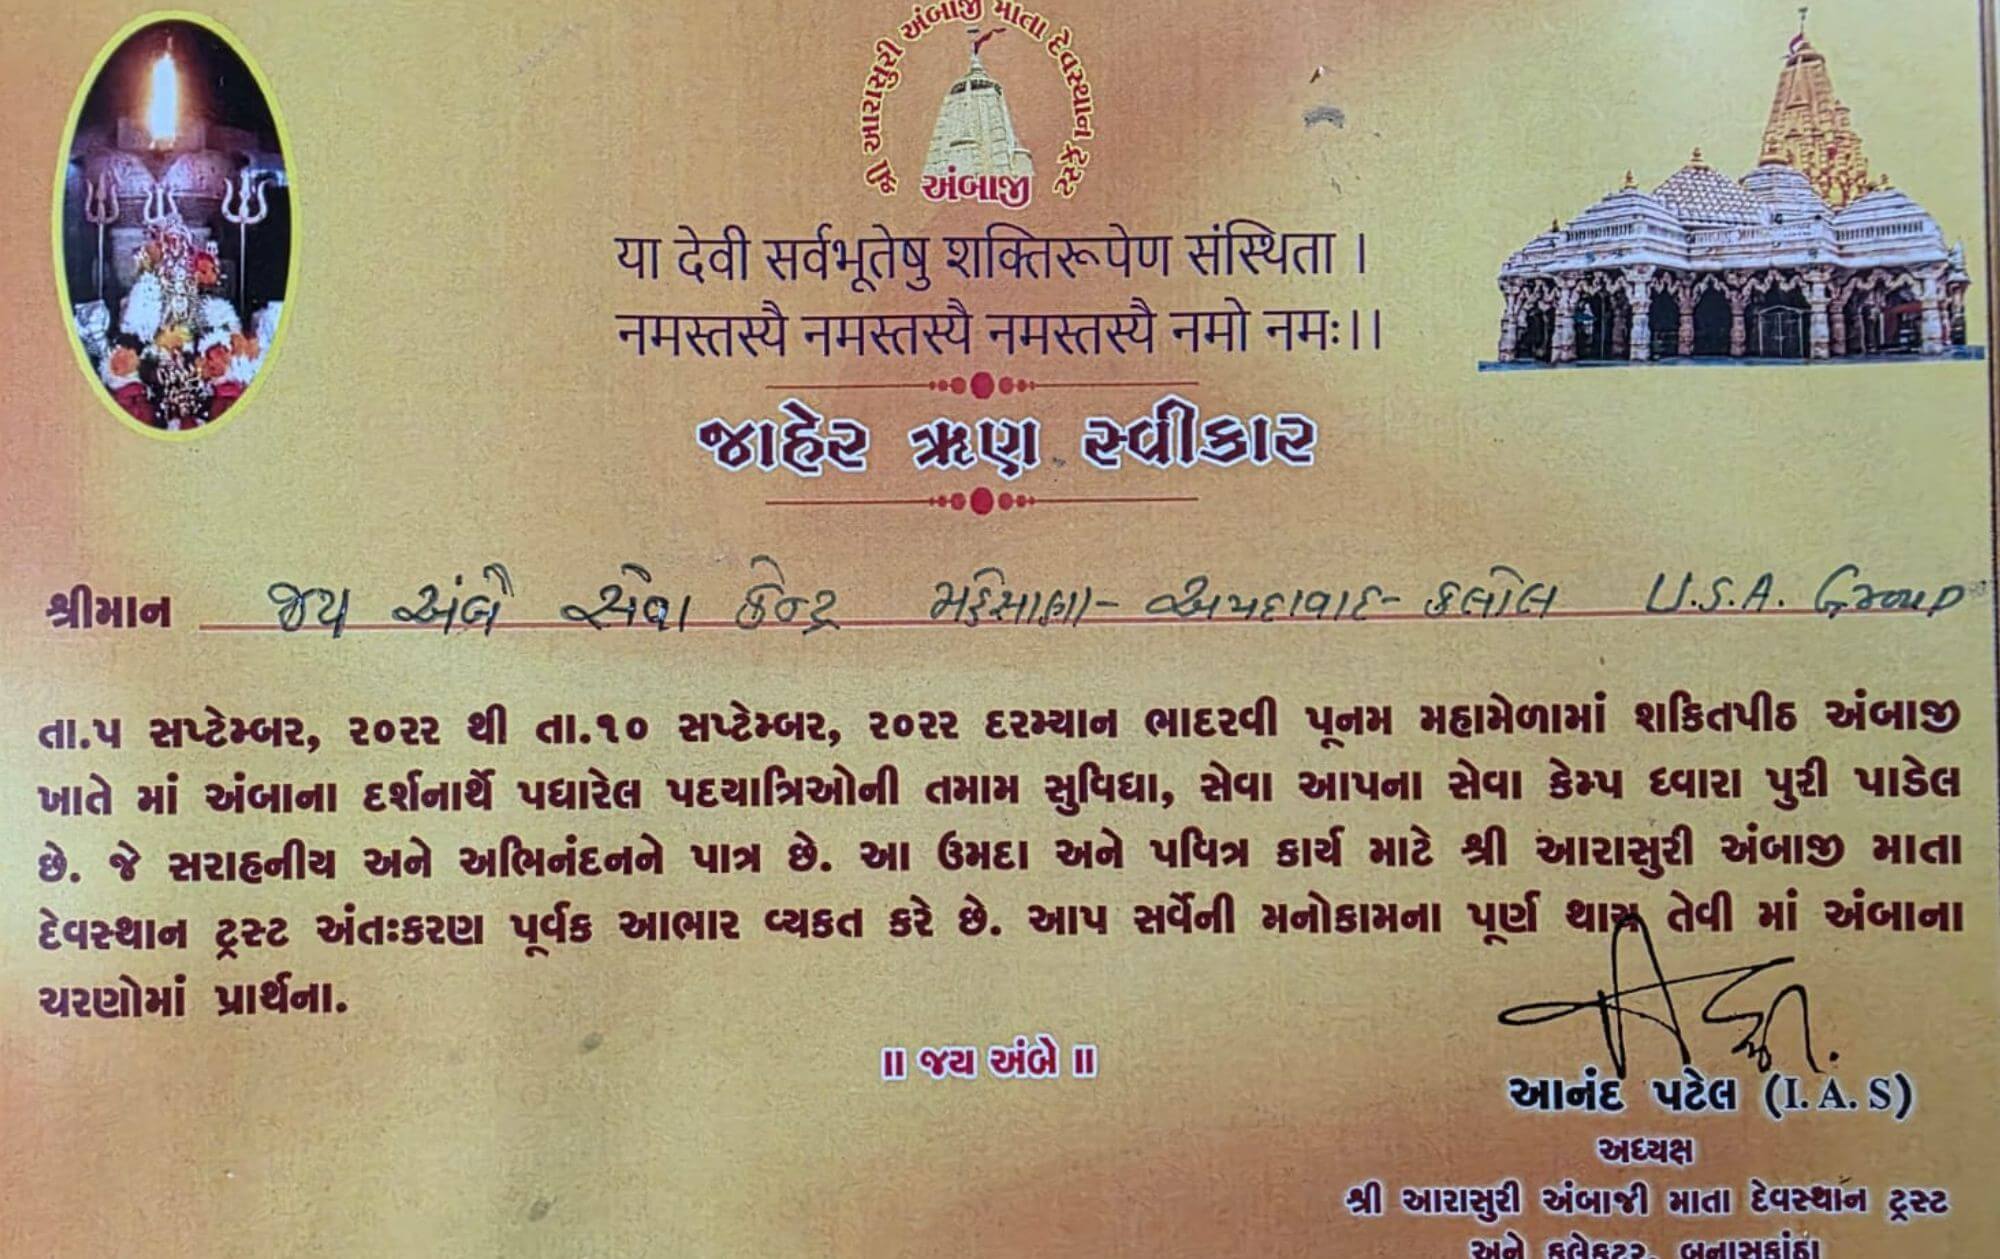 શ્રી આરાસુરી અંબાજી માતા દેવસ્થાન ટ્રસ્ટ
અંબાજી
या देवी सर्वभूतेषु शक्तिरूपेण संस्थिता ।
नमस्तस्यै नमस्तस्यै नमस्तस्यै नमो नमः।।
જાહેર ઋણ સ્વીકાર
શ્રીમાન જય અંબે સેવા કેન્દ્ર મહેસાણા - અમદાવાદ - કલોલ U.S.A. Group
તા.૫ સપ્ટેમ્બર, ૨૦૨૨ થી તા.૧૦ સપ્ટેમ્બર, ૨૦૨૨ દરમ્યાન ભાદરવી પૂનમ મહામેળામાં શકિતપીઠ અંબાજી
ખાતે માં અંબાના દર્શનાર્થે પધારેલ પદયાત્રિઓની તમામ સુવિધા, સેવા આપના સેવા કેમ્પ દવારા પુરી પાડેલ
છે. જે સરાહનીય અને અભિનંદનને પાત્ર છે. આ ઉમદા અને પવિત્ર કાર્ય માટે શ્રી આરાસુરી અંબાજી માતા
દેવસ્થાન ટ્રસ્ટ અંતઃકરણ પૂર્વક આભાર વ્યકત કરે છે. આપ સર્વેની મનોકામના પૂર્ણ થાય તેવી માં અંબાના
ચરણોમાં પ્રાર્થના.
॥ જય અંબે ॥
આનંદ પટેલ (I. A. S)
અધ્યક્ષ
શ્રી આરાસુરી અંબાજી માતા દેવસ્થાન ટ્રસ્ટ
અને કલેકટર, બનાસકાંઠા